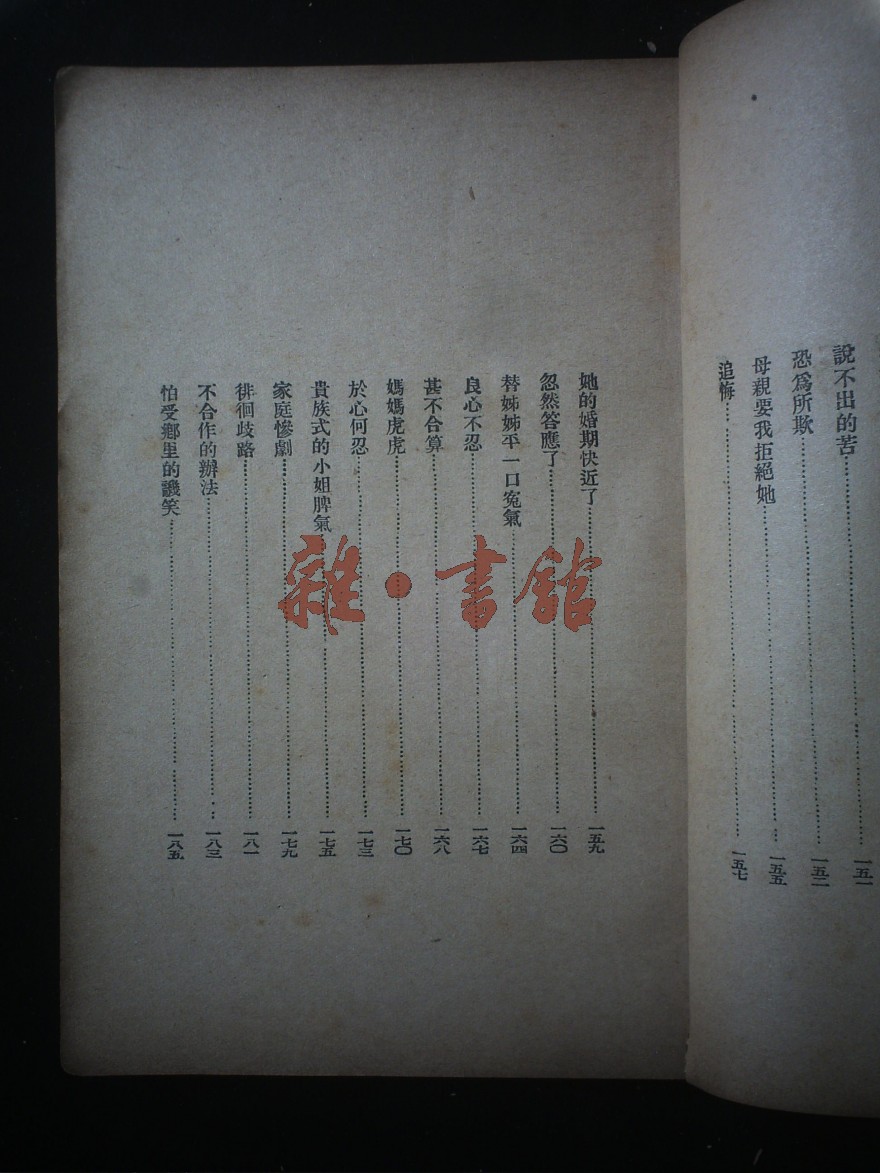 說不出的苦……一五一
恐爲所欺……一五二
母親要我拒絕她……一五五
追悔……一五七
她的婚期快近了……一五九
忽然答應了……一六〇
替姊姊平一口寃氣……一六四
良心不忍……一六七
甚不合算……一六八
媽媽虎虎……一七〇
於心何忍……一七三
貴族式的小姐脾氣……一七五
家庭慘劇……一七九
徘徊歧路……一八一
不合作的辦法……一八三
怕受鄉里的譏笑……一八五
雜·書館